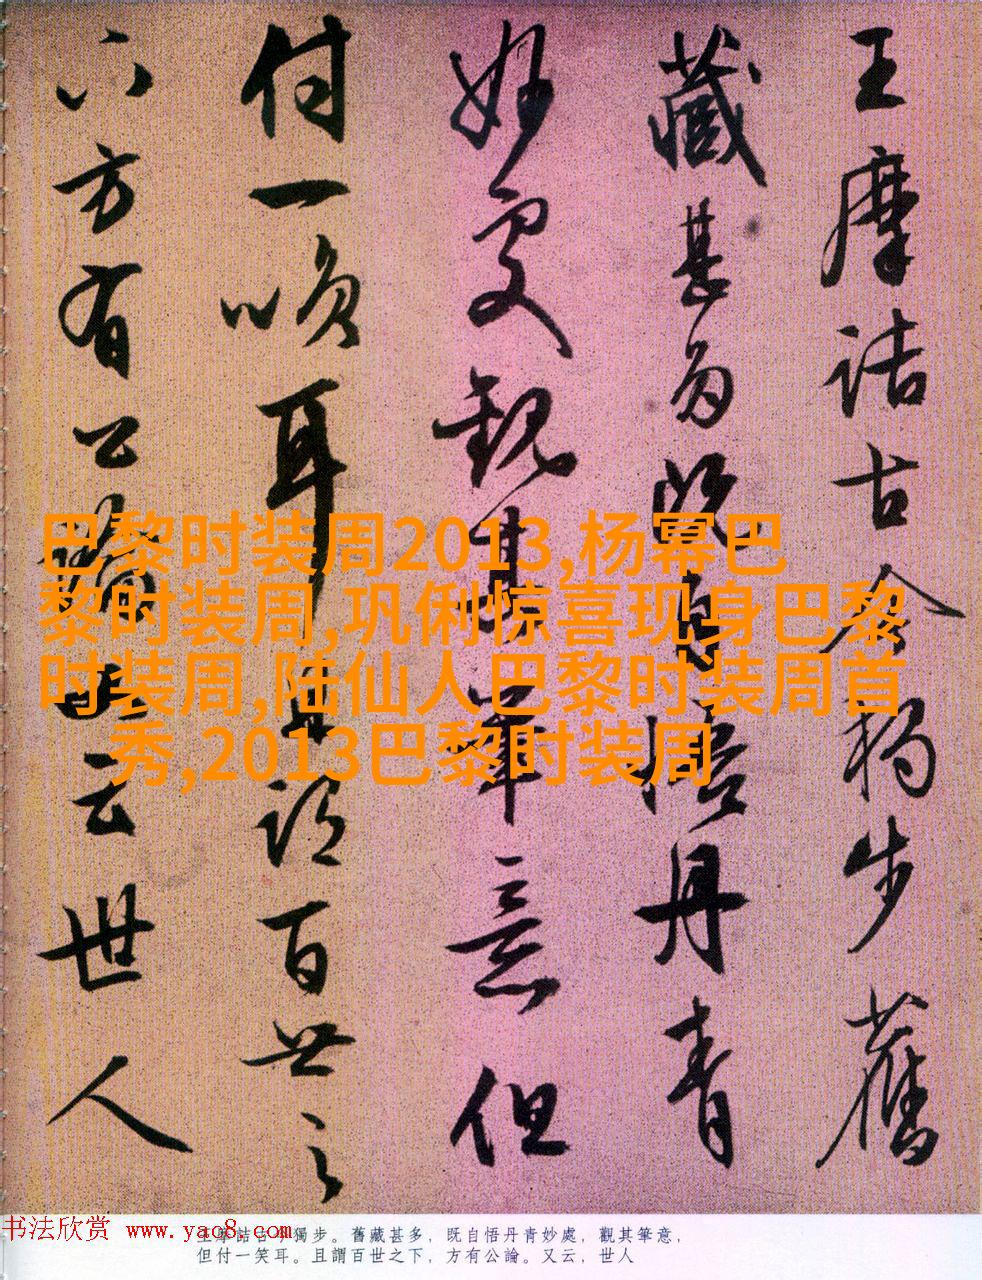 王摩詰古今獨步舊
藏甚多既自悟丹青
妙處觀其筆意但
付一咲耳且謂百世之
下方有公論又云世人
巴黎时装周2013,杨幂巴
黎时装周,巩俐惊喜现身巴黎
时装周,陆仙人巴黎时装周首
秀,2013巴黎时装周
书法欣赏 www.yac8.com
王摩詰古今獨步。舊藏甚多，既自悟丹青妙處，觀其筆意，
但付一笑耳。且謂百世之下，方有公論。又云，世人